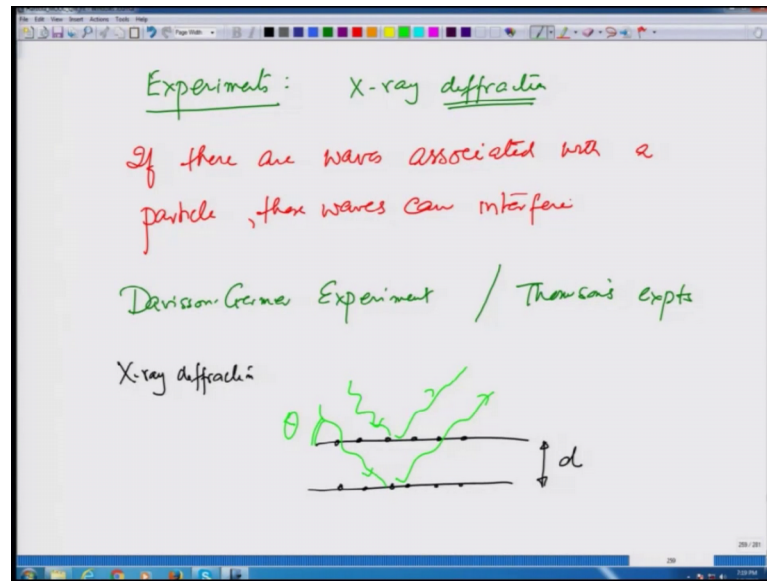 File Edit View Insert Actions Tools Help
Page Width
Experiments : X-ray diffraction
If there are waves associated with a
particle, these waves can interfere
Davisson-Germer Experiment / Thomson's expts
X-ray diffraction
θ
d
259 / 281
259
7:59 PM